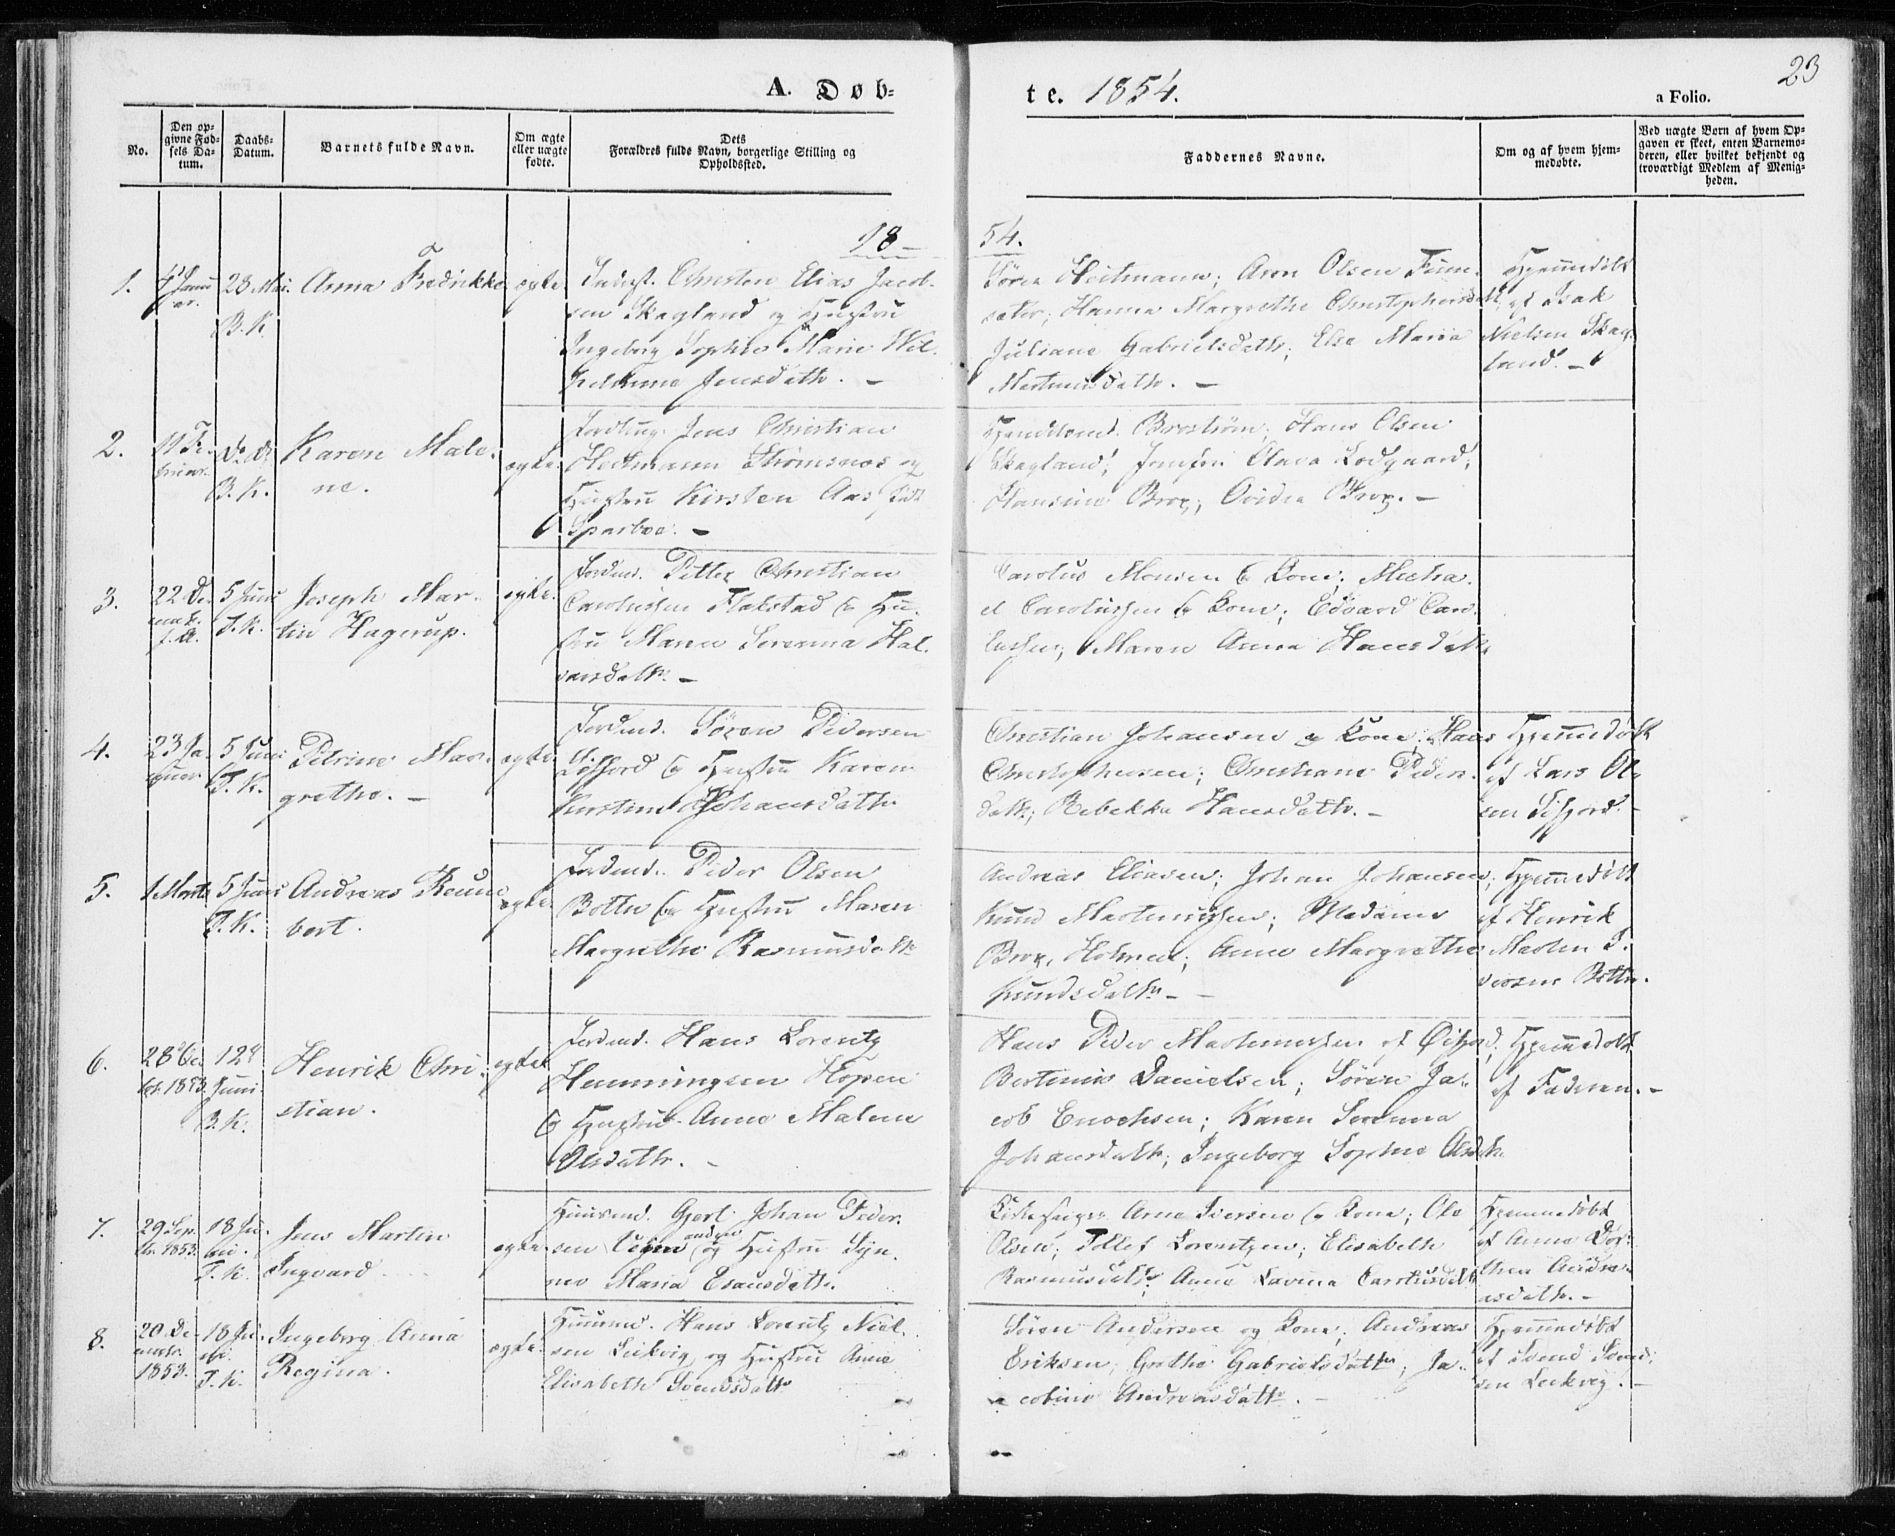 23
A. Døb-
te. 1854.
a Folio.
No.
Den op-
givne Fød-
sels Da-
tum.
Daabs-
Datum.
Barnets fulde Navn.
Om ægte
eller uægte
fødte.
Dets
Forældres fulde Navn, borgerlige Stilling og
Opholdssted.
Faddernes Navne.
Om og af hvem hjem-
medøbte.
Ved uægte Børn af hvem Op-
gaven er skeet, enten Barnemo-
deren, eller hvilket bekjendt og
troværdigt Medlem af Menig-
heden.
18-
54.
1.
4 Janu
ar.
23 Mai.
B. K.
Anna Fredrikke
ægte
Christen Elias Jacob-
sen Skagland og Hustru
Ingeborg Sophie Marie Wil-
helmine Jensdatter. -
Søren Heitmann; Aron Olsen Finn-
sæter; Hanna Margrethe Christophersdatt
Juliane Gabrielsdatter; Else Maria
Martinusdatter. -
Hjemmedøbt
af Isak
Nielsen Skag-
land. -
2.
11 Fe-
bruar.
B. K.
Karen Male-
ne.
ægte
Jens Christian
Heitmann Strømsnæs og
Hustru Kirsten Aas født
Sparboe. -
Brostrøm; Hans Olsen
Skagland; Jomfru Olava Lodgaard;
Hansine Brox; Ovidia Brox. -
3.
22 De-
cemb.
f. A.
5 Juni
T. K.
Joseph Mar-
tin Hagerup.
ægte.
Gaardmd. Petter Christian
Carolussen Flakstad & Hu-
stru Maren Serenna Hal-
vorsdatter. -
Carolus Monsen & Kone; Micha-
el Carolussen & Kone; Edvard Caro-
lussen; Maren Anna Hansdatter
4.
23 Ja-
nuar.
5 Juni
T. K.
Petrine Mar-
grethe. -
ægte
Gaardmd. Søren Pedersen
& Hustru Karen
Kirstine Johansdatter
Christian Johansen og Kone; Hans
Christophersen; Christiane Peders-
datt; Rebekka Hansdatter. -
Hjemmedøbt
af Lars Ol-
sen
5.
1 Marts
5 Juni
T. K.
Andreas
bert.
ægte.
Gaardmd. Peder Olsen
Botten & Hustru Maren
Margrethe Rasmusdatter
Andreas Eliasen; Johan Johansen;
Knud Martinussen; Madame
Brox, Holmen; Anne Margrethe
Knudsdatter -
Hjemmedøbt
af Henrik
Morten I-
versen Botten.
6.
28 Oc-
tob. 1853.
12te
Juni
B. K.
Henrik Chri-
stian.
ægte
Gaardmd. Hans Lorentz
Henningsen Hopen
& Hustru Anne Malene
Olsdatter. -
Hans Peder Martinussen af Øifjord;
Bertinus Danielsen; Søren Ja-
cob Enochsen; Karen Serenna
Johansdatter; Ingeborg Sophie Olsdatter
Hjemmedøbt
af Faderen. -
7.
29 Sep-
tbr. 1853.
18 Ju-
ni.
T. K.
Jens Martin
Ingvard
ægte
Huusmd. Gjert Johan Peder-
sen og Hustru Syn-
nev Maria Esausdatter.
Kirkesanger Arne Iversen & Kone; Ole
Olsen; Tollef Lorentzen; Elisabeth
Rasmusdatter; Anne Lavina Carolusdatt
Hjemmedøbt
af Anne Dor-
thea Andre-
asdatter. -
8.
20 De-
cembr.
1853.
18 Ju-
ni.
T. K.
Ingeborg Anna
Regina.
ægte.
Huusmd. Hans Lorentz Niel-
sen Leikvig og Hustru Anne
Elisabeth Svendsdatter
Søren Andersen og Kone; Andreas
Eriksen; Grethe Gabrielsdatter; Ja-
cobine Andreasdatter. -
Hjemmedøbt
af Svend Svend-
sen Leekvig. -